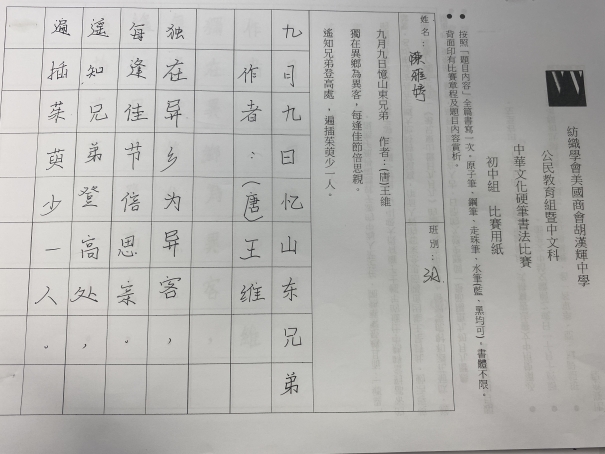 紡織學會美國商會胡漢輝中學
公民教育組暨中文科
中華文化硬筆書法比賽
初中組 比賽用紙
按照「題目內容」全篇書寫一次。原子筆、鋼筆、走珠筆、水筆(藍、黑均可)，書體不限。
背面印有比賽章程及題目內容賞析。
姓名：陳雅婷 班別：3A
九月九日憶山東兄弟 作者：(唐)王維
獨在異鄉為異客，每逢佳節倍思親。
遙知兄弟登高處，遍插茱萸少一人。
九月九日忆山东兄弟
作者：(唐)王维
独在异乡为异客，
每逢佳节倍思亲。
遥知兄弟登高处，
遍插茱萸少一人。